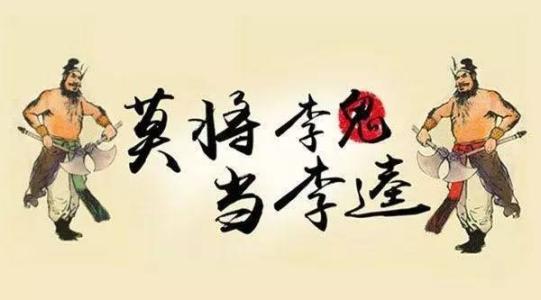 莫将李鬼
当李逵